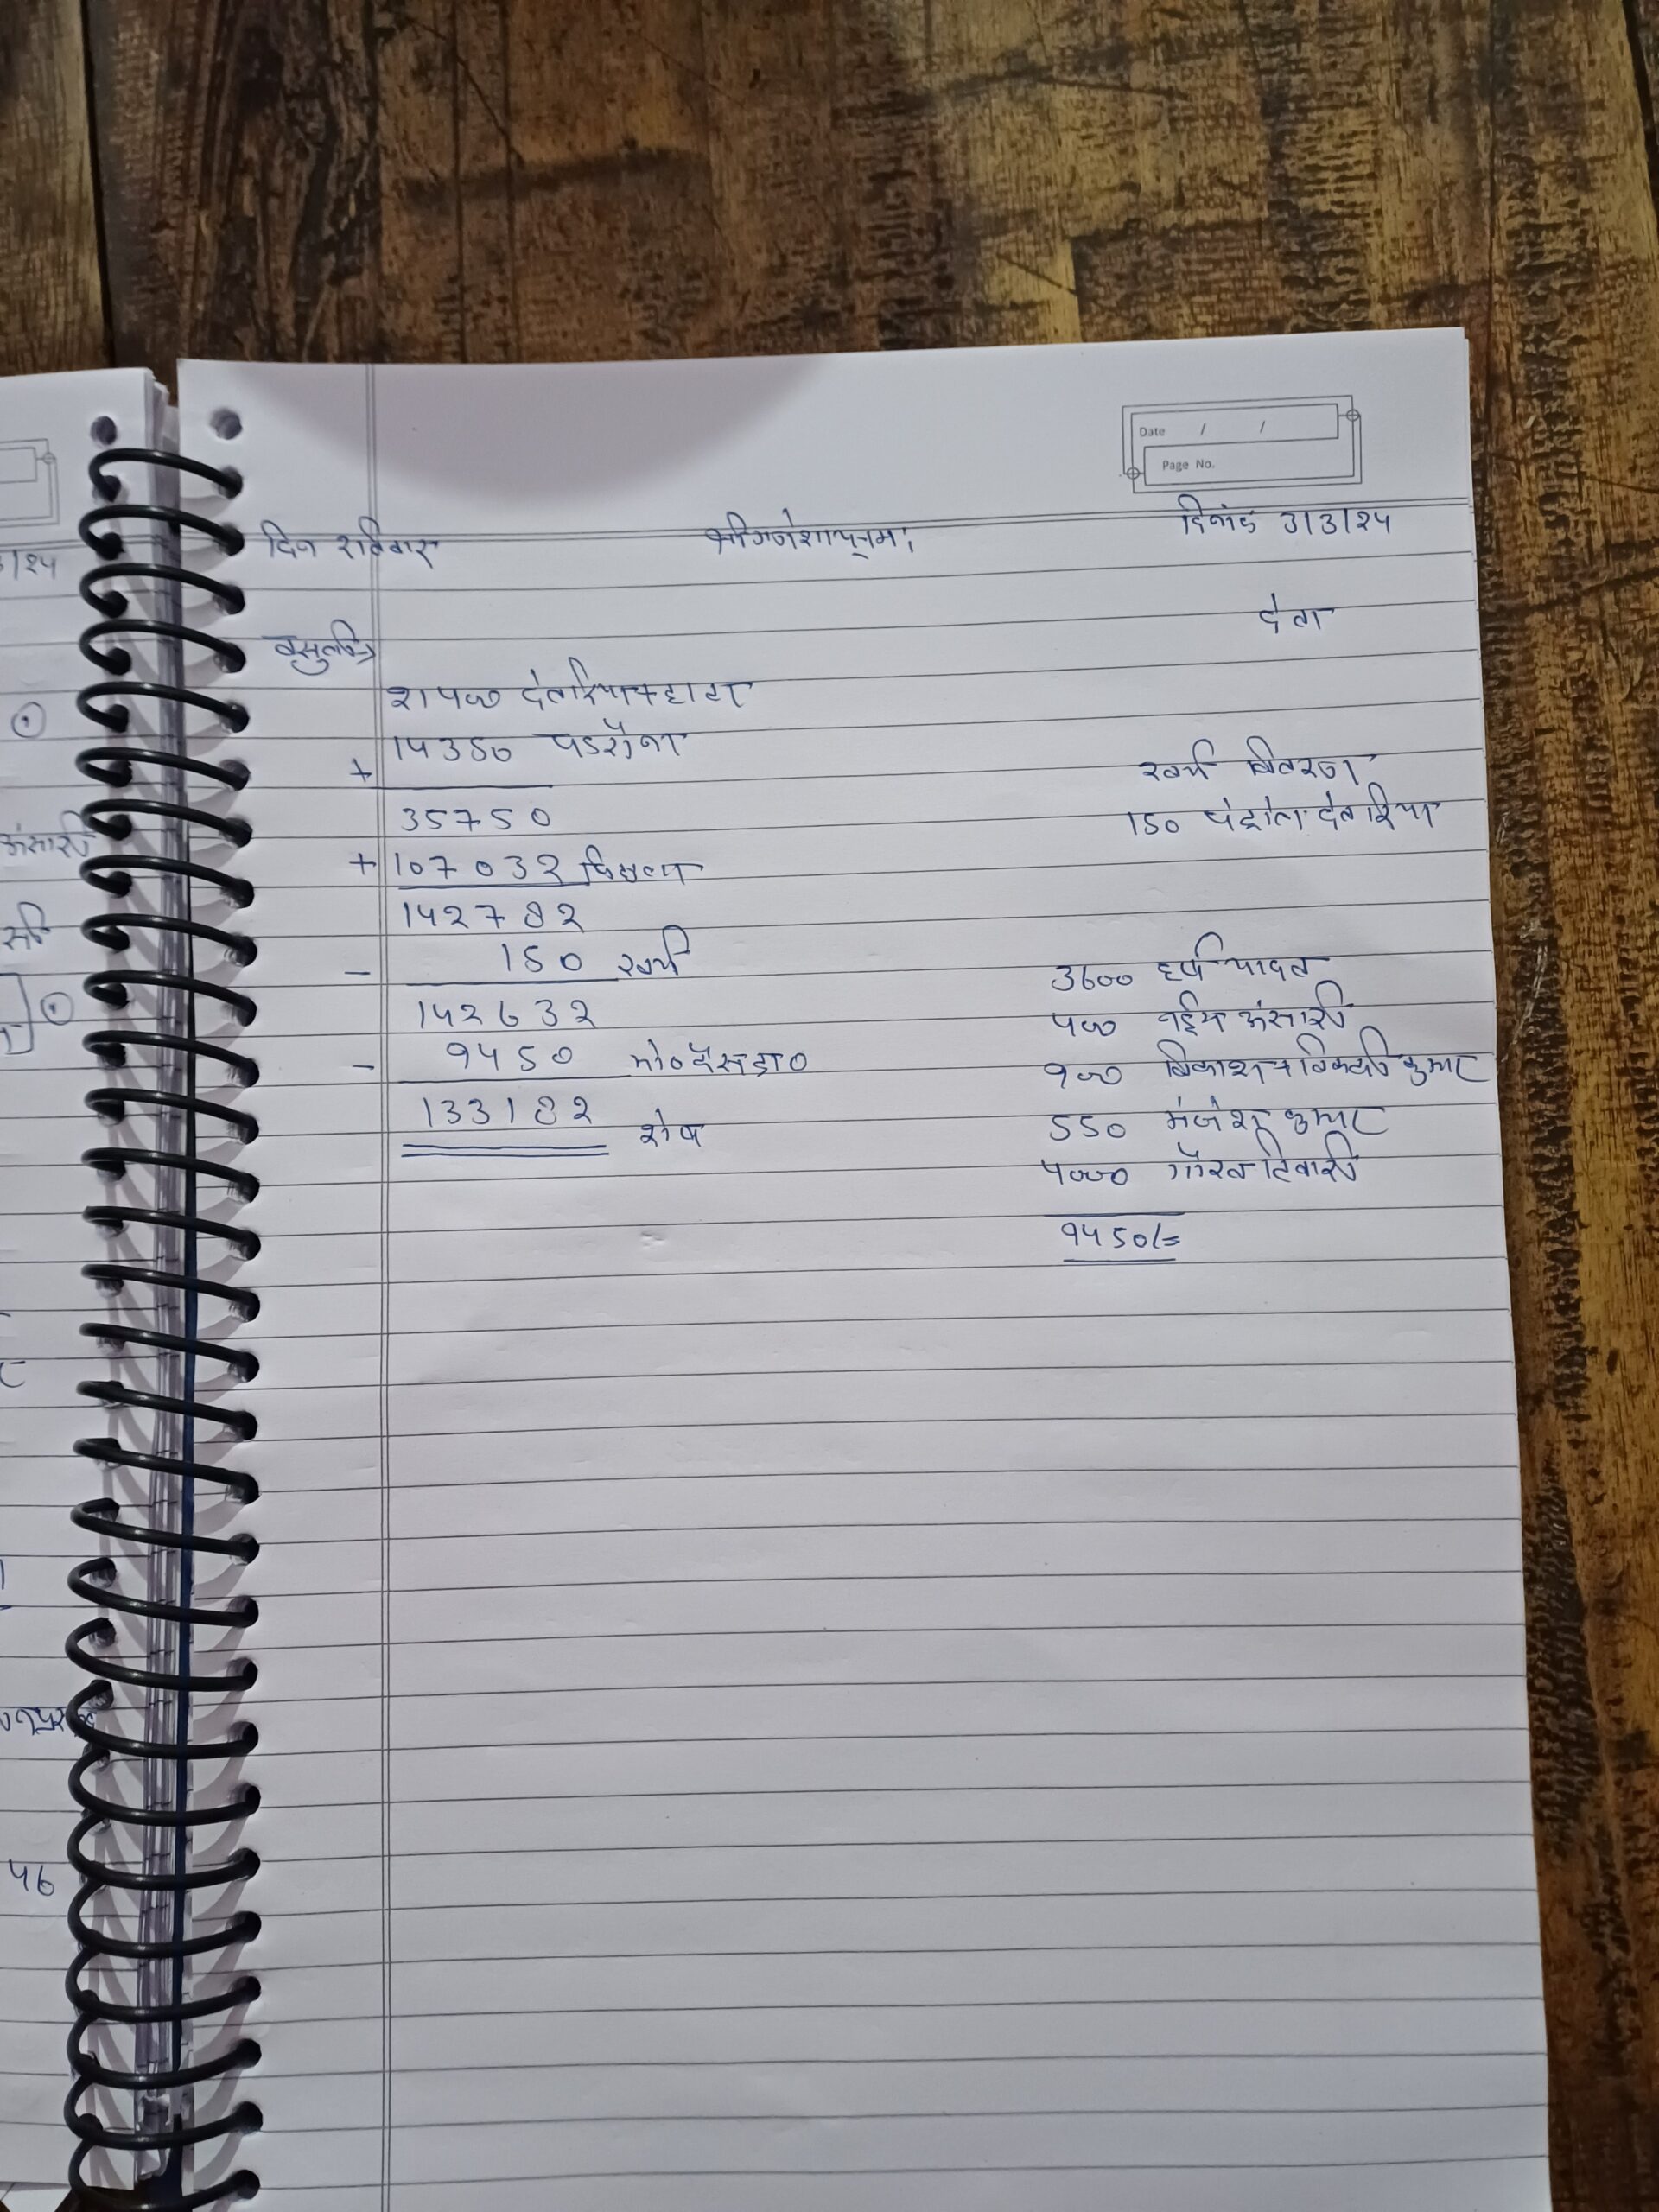 Date / /
Page No.
दिन रविवार श्री गणेशाय नमः दिनांक 3/3/24
वसुली→
21400 देवरिया+हाटा
+ 14350 पडरौना
35750
+ 107032 पिछला
142782
- 150 खर्च
142632
- 9450
133182 शेष
खर्च विवरण
150 पेट्रोल देवरिया
3600 हर्ष यादव
400 नईम अंसारी
900 विकाश + विक्की कुमार
550 मंजेश कुमार
4000 गौरव तिवारी
9450/=
/24
अंसारी
46